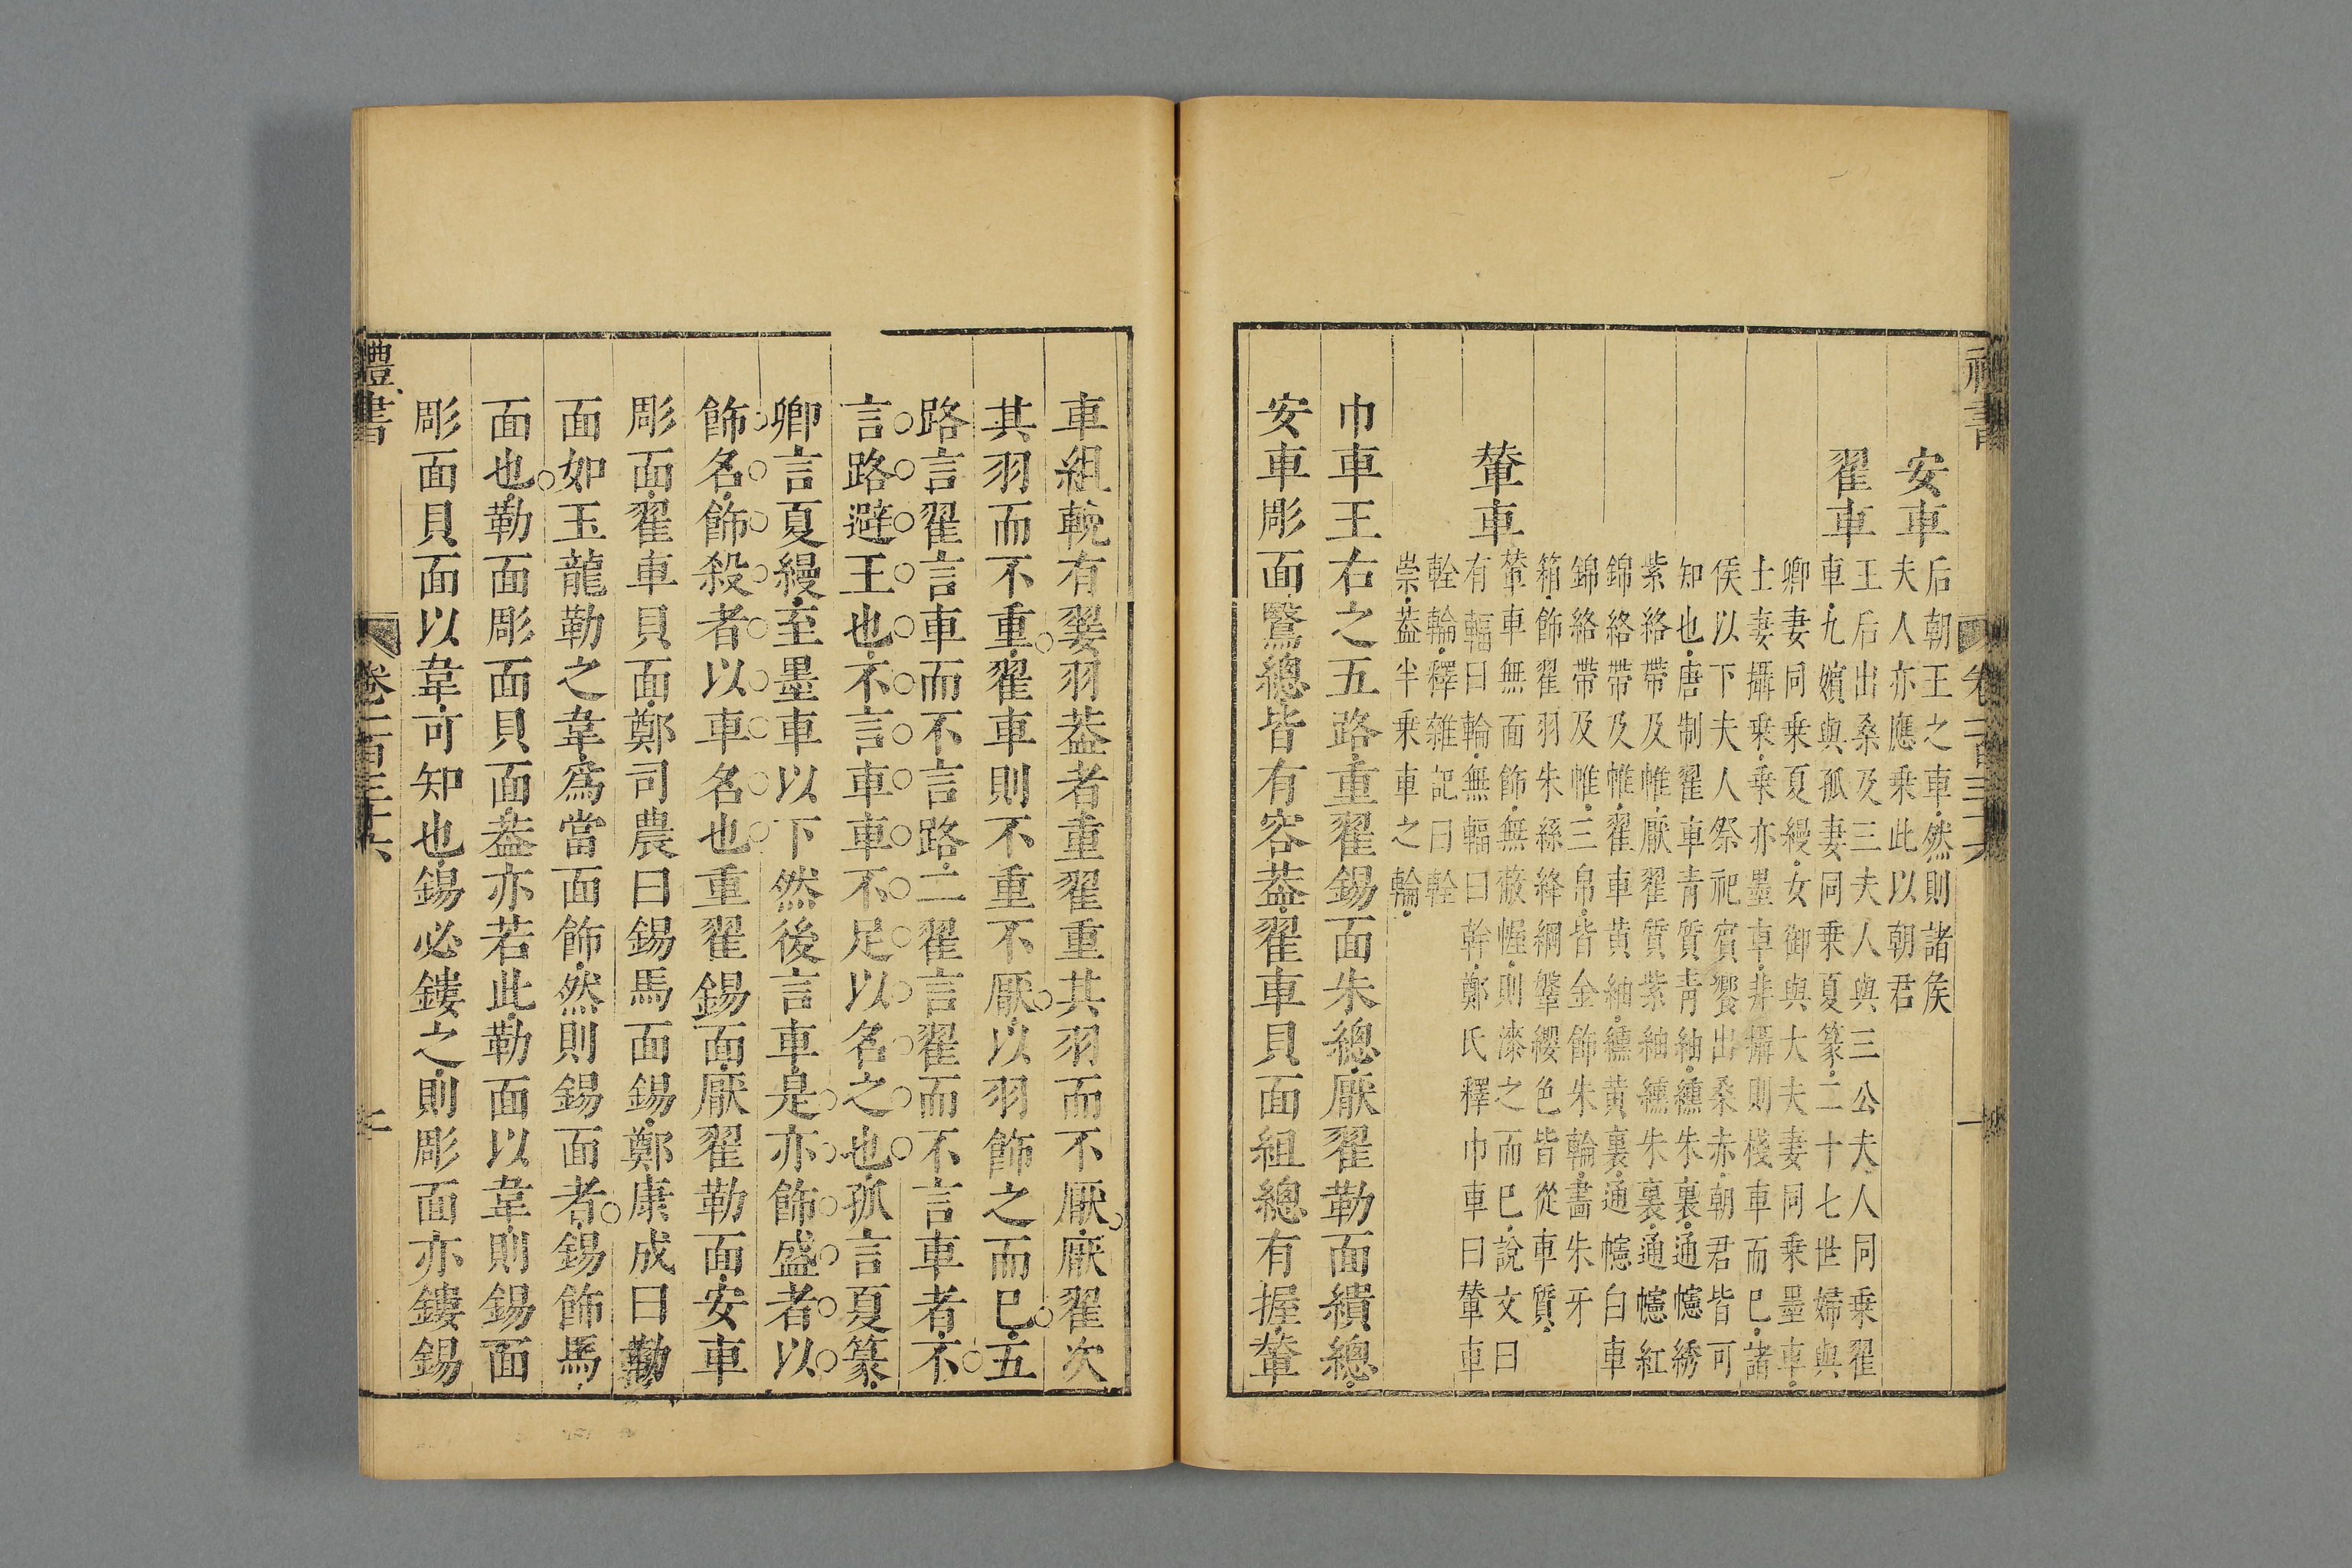 禮書 卷一百三十六 一
安車 后朝王之車然則諸侯
夫人亦應乘此以朝君
翟車 王后出桑及三夫人與三公夫人同乘翟
車九嬪與孤妻同乘夏篆二十七世婦與
卿妻同乘夏縵女御與大夫妻同乘墨車
士妻攝乘乘亦墨車非攝則棧車而已諸
侯以下夫人祭祀賓饗出桑赤朝君皆可
知也唐制翟車青質青紬纁朱裏通幰綉
紫絡帶及帷厭翟質紫紬纁朱裏通幰紅
錦絡帶及帷翟車黃紬纁黃裏通幰白車
錦絡帶及帷三帛皆金飾朱輪畫朱牙
箱飾翟羽朱絲絳網鞶纓色皆從車質
輦車 輦車無面飾無蔽幄則漆之而已說文曰
有輻曰輪無輻曰幹鄭氏釋巾車曰輦車
輇輪釋雜記曰輇
崇葢半乘車之輪
巾車王右之五路重翟錫面朱總厭翟勒面繢總
安車彫面鷖總皆有容葢翟車貝面組總有握輦
車組輓有翣羽葢者重翟重其羽而不厭厭翟次
其羽而不重翟車則不重不厭以羽飾之而已五
路言翟言車而不言路二翟言翟而不言車者不
言路避王也不言車車不足以名之也孤言夏篆
卿言夏縵至墨車以下然後言車是亦飾盛者以
飾名飾殺者以車名也重翟錫面厭翟勒面安車
彫面翟車貝面鄭司農曰錫馬面錫鄭康成曰勒
面如玉龍勒之韋爲當面飾然則錫面者錫飾馬
面也勒面彫面貝面葢亦若此勒面以韋則錫面
彫面貝面以韋可知也錫必鏤之則彫面亦鏤錫
禮書 卷一百三十六 二